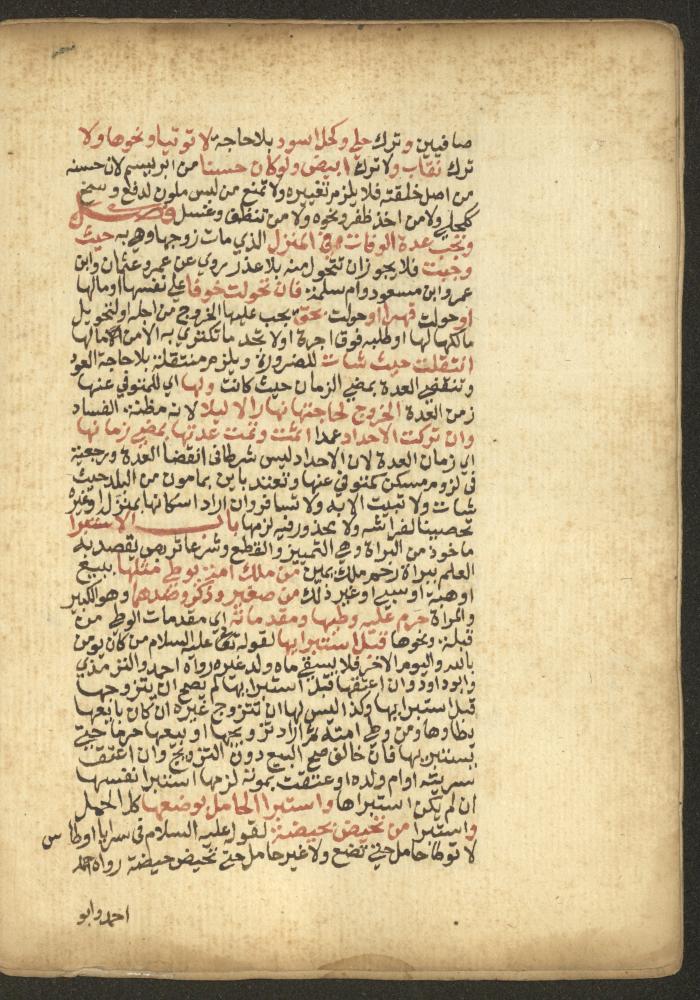 صافيين وترك حلي وكحل اسود بلا حاجة لا توتيا ونحوها ولا
ترك نقاب ولا ترك ابيض ولو كان حسنا من ابريسم لان حسنه
من اصل خلقته فلا يلزم تغييره ولا تمنع من لبس ملون لدفع وسخ
ككحلي ولا من اخذ ظفر ونحوه ولا من تنظف وغسل فصل
وتجب عدة الوفات في المنزل الذي مات زوجها وهي به حيث
وجبت فلا يجوز ان تتحول منه بلا عذر روي عن عمر وعثمان وابن
عمر وابن مسعود وام سلمة فان تحولت خوفا على نفسها او مالها
او حولت قهرا او حولت بحق يجب عليها الخروج من اجله او لتحويل
مالكها لها او طلبه فوق اجرة او لا تجد ما تكتري به الا من مالها
انتقلت حيث شات للضرورة ويلزم منتقلة بلا حاجة العود
وتنقضي العدة بمضي الزمان حيث كانت ولها اي للمتوفي عنها
زمن العدة الخروج لحاجتها نهارا لا ليلا لانه مظنة الفساد
وان تركت الاحداد عمدا اثمت وتمت عدتها بمضي زمانها
اي زمان العدة لان الاحداد ليس شرطا في انقضا العدة ورجعية
في لزوم مسكن كمتوفي عنها وتعتد باين بمامون من البلد حيث
شات ولا تبيت الا به ولا تسافر وان اراد اسكانها بمنزله او غيره
تحصينا لفراشه ولا محذور فيه لزمها باب الاستبرا
ماخوذ من البراة وهي التمييز والقطع وشرعا تربص يقصد به
العلم ببراة رحم ملك يمين من ملك امة يوطي مثلها ببيع
او هبة او سبي او غير ذلك من صغير وذكر وضدهما وهو الكبير
والمراة حرم عليه وطيها ومقدماته اي مقدمات الوطي من
قبلة ونحوها قبل استبرايها لقوله عليه السلام من كان يومن
بالله واليوم الاخر فلا يسقي ماه ولد غيره رواه احمد والترمذي
وابو داود وان اعتقها قبل استبرايها لم يصح ان يتزوجها
قبل استبرايها وكذا ليس لها ان تتزوج غيره ان كان بايعها
يطاوها ومن وطي امته ثم اراد تزويجها او بيعها حرما حتي
يستبريها فان خالف صح البيع دون التزويج وان اعتق
سريته او ام ولده او عتقت بموته لزمها استبرا نفسها
ان لم يكن استبراها واستبرا الحامل بوضعها كل الحمل
واستبرا من تحيض بحيضة لقوله عليه السلام في سبايا اوطاس
لا توطا حامل حتي تضع ولا غير حامل حتي تحيض حيضة رواه
احمد وابو